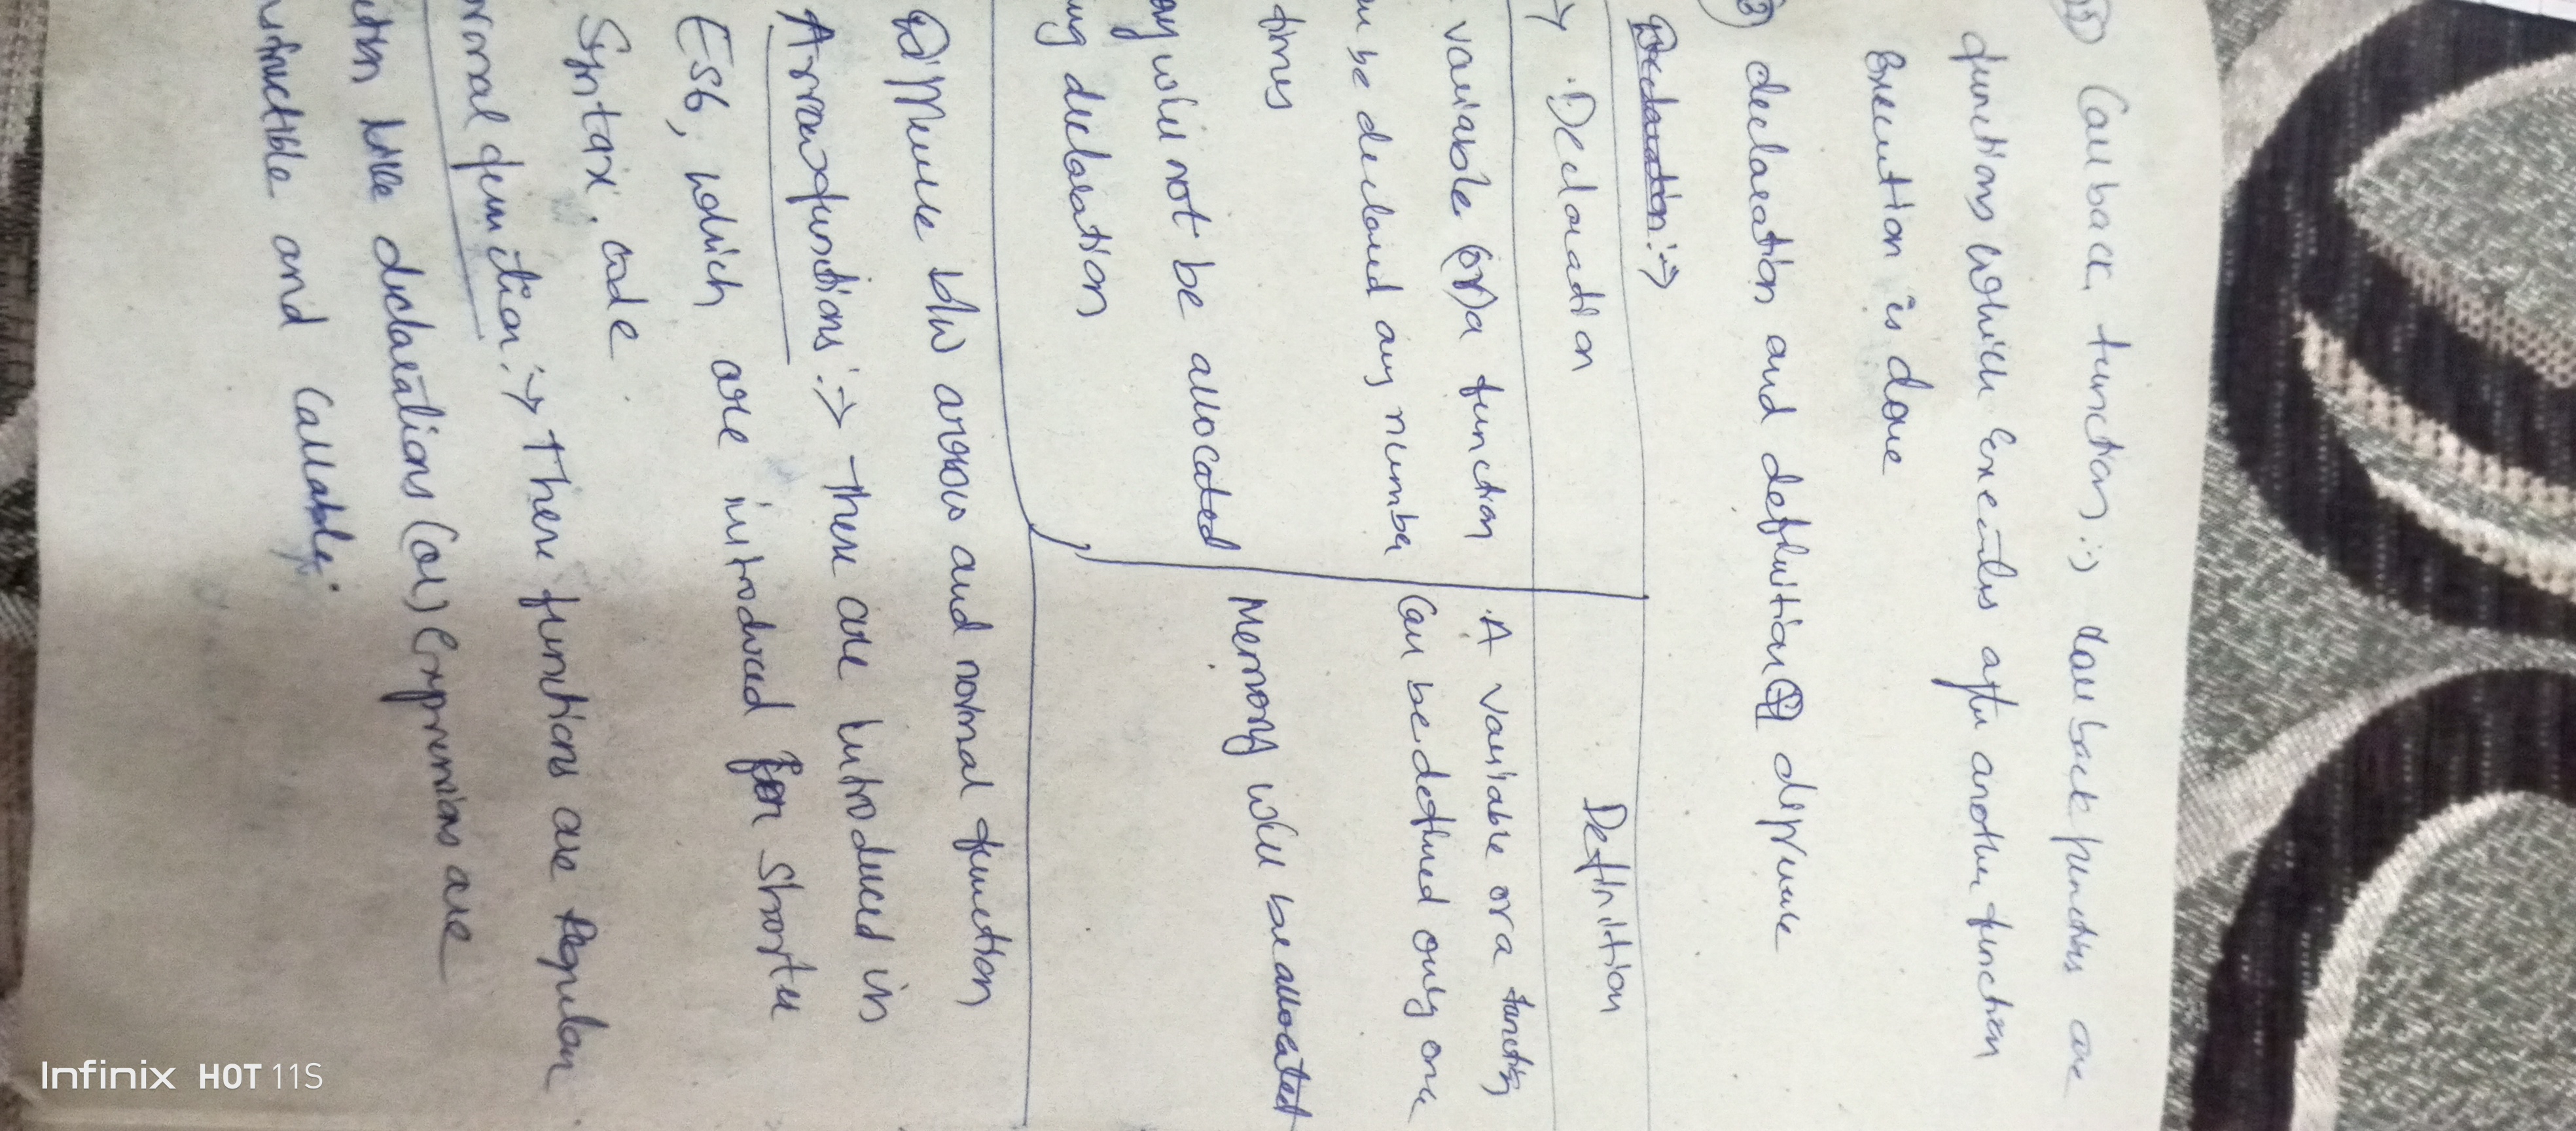 Call back function :→ Call back functions are
functions which Executes after another function
Execution is done
declaration and definition difference
Declaration :→
Declaration
Definition
variable (or) a function
be declared any number
times
will not be allocated
declaration
A variable or a function
Can be defined only once
Memory will be allocated
b/w arrow and normal function
Arrow functions :→ these are introduced in
ES6, which are introduced for shorter
Syntax, code
function :→ These functions are Regular
like declarations (or) Expressions are
and Callable.
Infinix HOT 11S